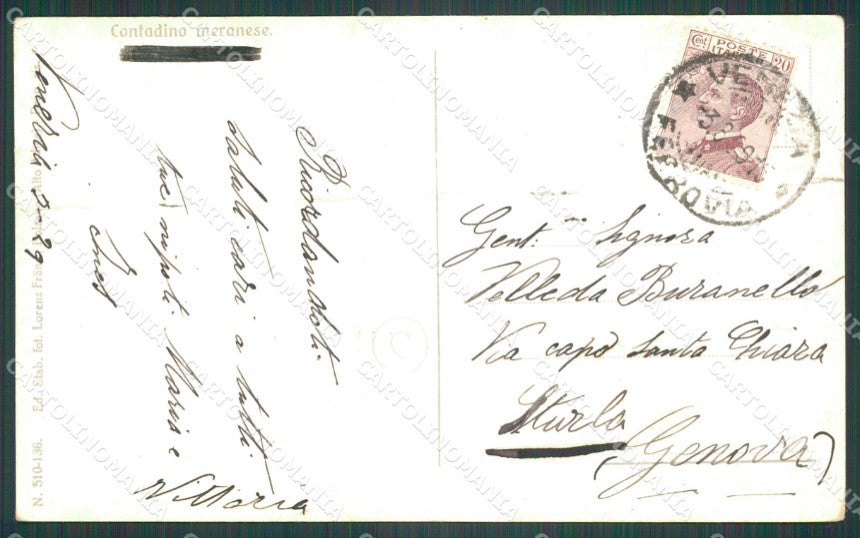 Contadino meranese.
Venezia 2-29
Ricordandoti
saluti cari a tutti
tuoi nipoti Maria e
Vittoria
Ines
N. 510-136. Ed. Stab. fot. Lorenz Frän
Alto
Cent 20
POSTE
VENEZIA
FERROVIA
Gent. Signora
Velleda Buranello
Via capo Santa Chiara
Sturla
(Genova)
CARTOLINOMANIA